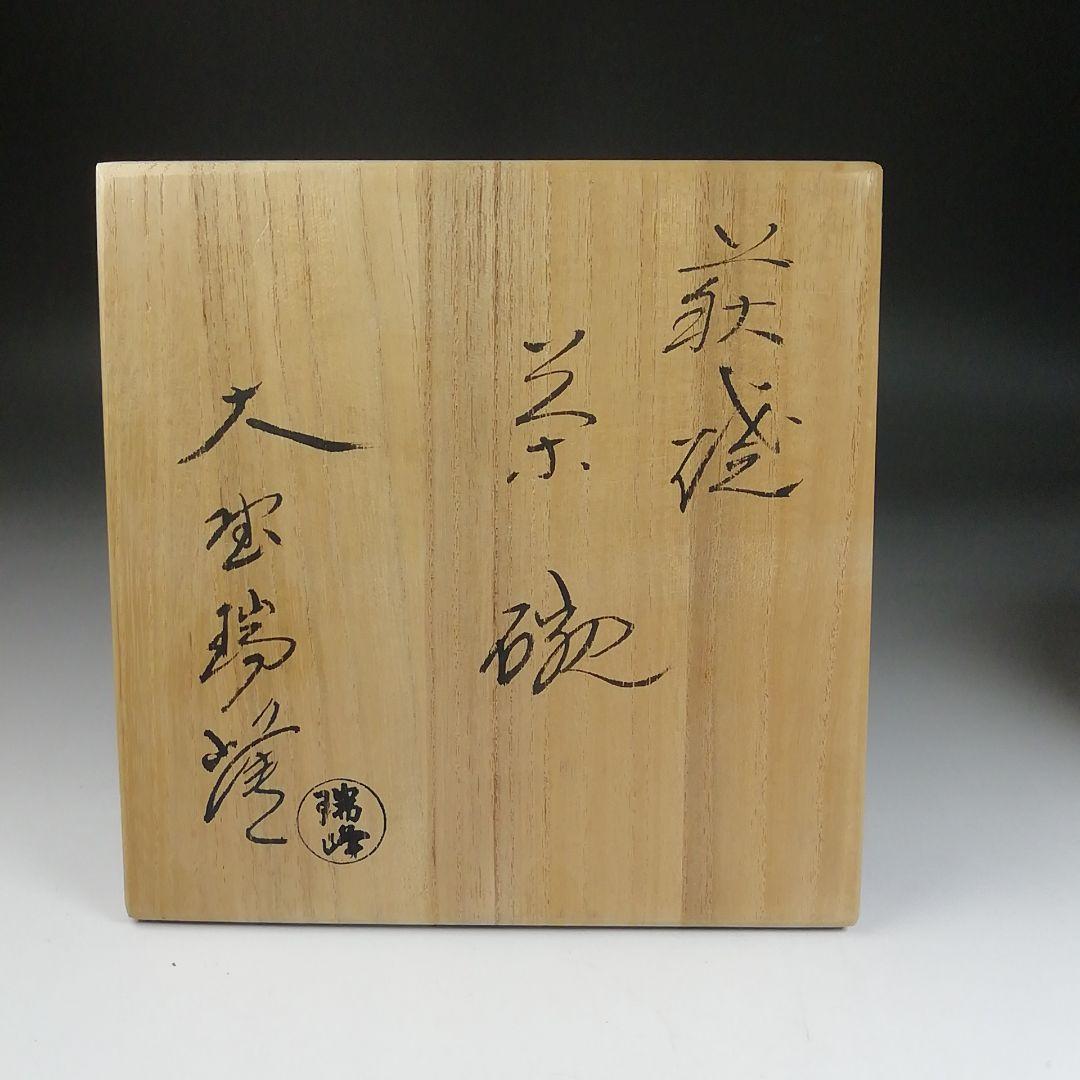 萩焼
茶碗
大 瑞峰
瑞峰